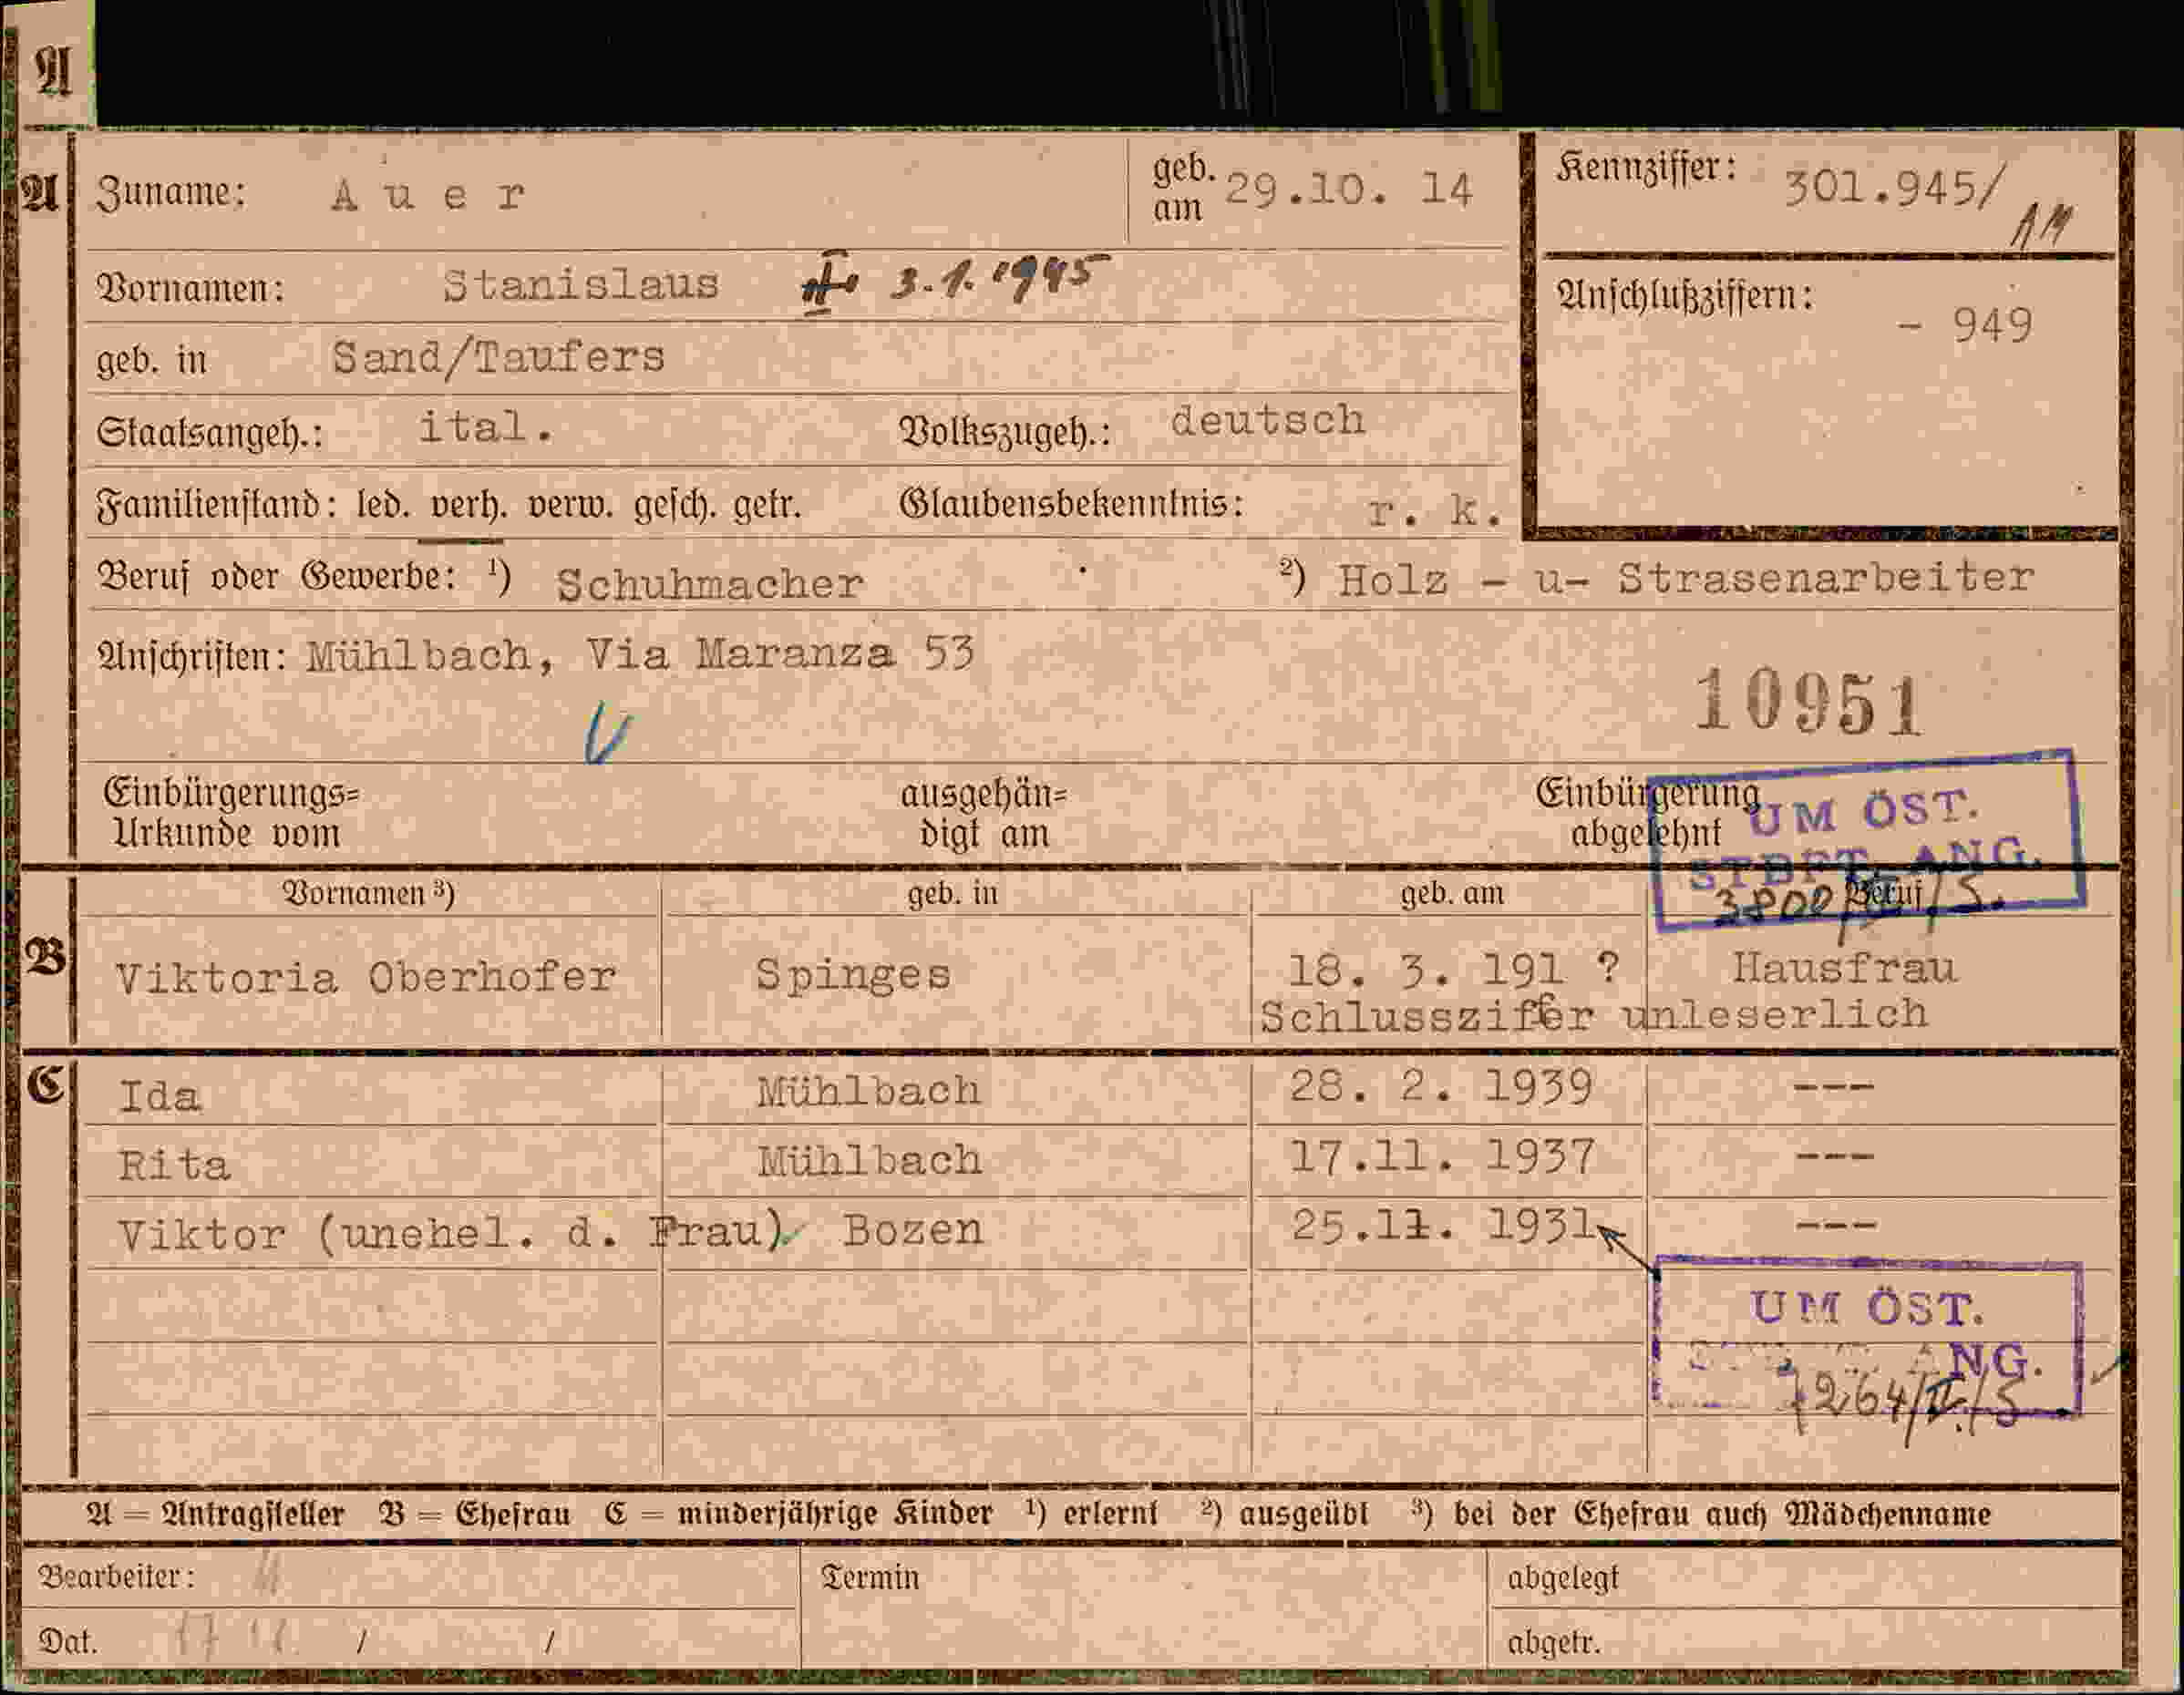 A
A Zuname: Auer geb. am 29.10. 14 Kennziffer: 301.945/
Vornamen: Stanislaus 3.1.1945 Anschlußziffern: - 949
geb. in Sand/Taufers
Staatsangeh.: ital. Volkszugeh.: deutsch
Familienstand: led. verh. verw. gesch. getr. Glaubensbekenntnis: r. k.
Beruf oder Gewerbe: ¹) Schuhmacher ²) Holz - u- Strasenarbeiter
Anschriften: Mühlbach, Via Maranza 53
10951
Einbürgerungs= Urkunde vom ausgehän= digt am Einbürgerung abgelehnt
UM ÖST.
ANG.
Vornamen ³) geb. in geb. am Beruf
B Viktoria Oberhofer Spinges 18. 3. 191 ? Hausfrau
Schlussziffer unleserlich
C Ida Mühlbach 28. 2. 1939 ---
Rita Mühlbach 17.11. 1937 ---
Viktor (unehel. d. Frau) Bozen 25.11. 1931 ---
UM ÖST.
NG.
7264/II/S
A = Antragsteller B = Ehefrau C = minderjährige Kinder ¹) erlernt ²) ausgeübt ³) bei der Ehefrau auch Mädchenname
Bearbeiter: Termin abgelegt
Dat. / / abgetr.